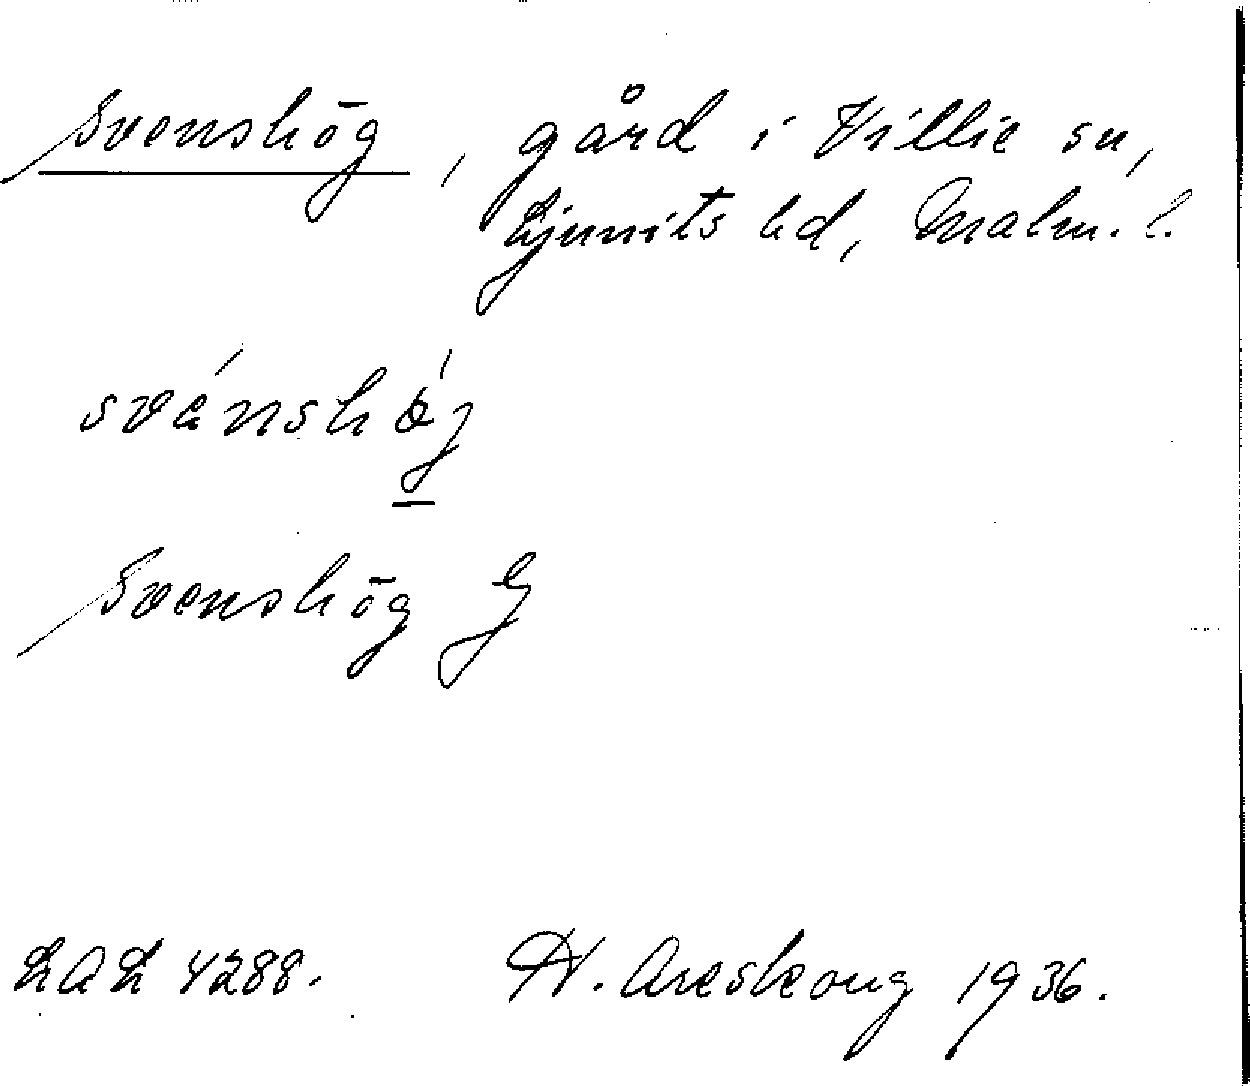 Svenshög, gård i Villie sn,
Ljunits hd, Malm. l.
svénshǿj
Svenshög G
LAL 4288. H. Areskoug 1936.